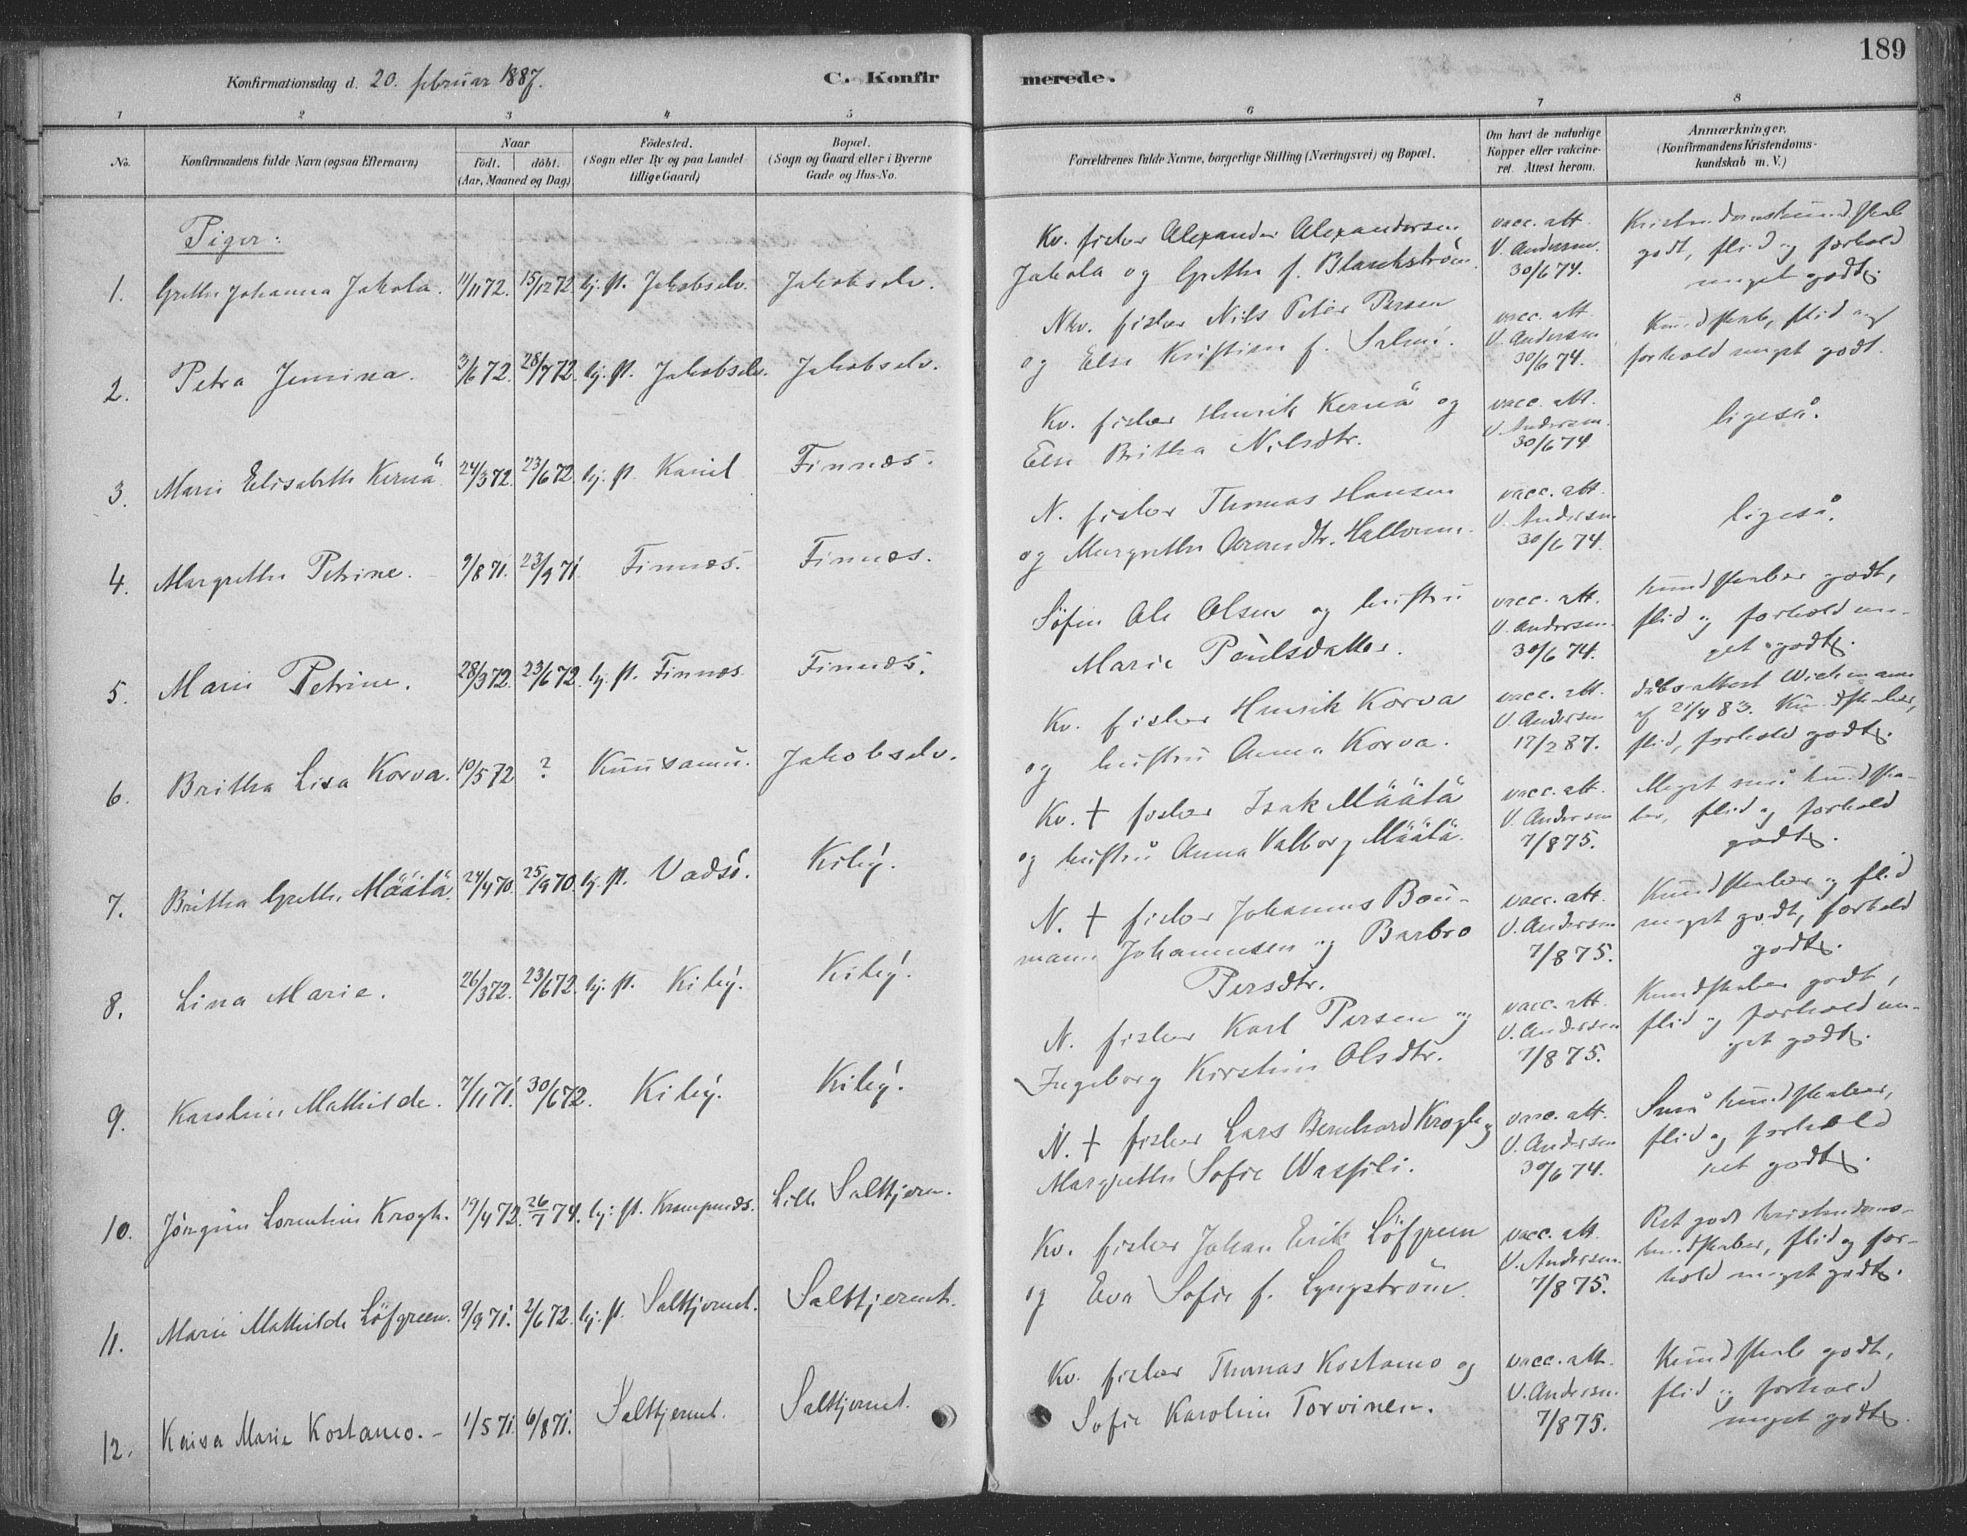 189
Konfirmationsdag d. 20. februar 1887.
C. Konfirmerede.
1 2 3 4 5 6 7 8
No.
Konfirmandens fulde Navn (ogsaa Efternavn)
Naar
födt. döbt.
(Aar, Maaned og Dag)
Födested.
(Sogn eller By og paa Landet
tillige Gaard)
Bopæl.
(Sogn og Gaard eller i Byerne
Gade og Hus-No.
Forældrenes fulde Navne, borgerlige Stilling (Næringsvei) og Bopæl.
Om havt de naturlige
Kopper eller vaccine-
ret. Attest herom.
Anmærkninger.
(Konfirmandens Kristendoms-
kundskab m. V.)
Piger:
1. Grethe Johanna Jakola. 11/11 72. 15/12 72 hj. ft. Jakobselv. Jakobselv.
Kv. fisker Alexander Alexandersen
Jakola og Grethe f. Blankström.
vacc. att.
V. Andersen.
30/6 74.
Kristendomskundskab
godt, flid og forhold
meget godt.
2. Petra Jemina. 3/6 72. 28/7 72. hj. ft. Jakobselv. Jakobselv.
Nkv. fisker Nils Peter Persen
og Else Kristine f. Salmi.
vacc. att
V. Andersen
30/6 74.
Kundskab, flid og
forhold meget godt.
3. Marie Elisabeth Kernä 24/3 72. 23/6 72 hj. ft. Finnæs.
Kv. fisker Henrik Kernä og
Else Britha Nilsdtr.
vacc. att.
V. Andersen.
30/6 74
ligeså.
4. Margrethe Petrine. 9/8 71. 23/9 71 Finnæs. Finnæs.
N. fisker Thomas Hansen
og Margrethe
vacc. att.
V. Andersen
30/6 74.
ligeså.
5. Marie Petrine. 28/3 72. 23/6 72. hj. ft. Finnæs. Finnæs.
Söfin Ole Olsen og hustru
Marie Paulsdatter.
vacc. att.
V. Andersen.
30/6 74.
Kundskaber godt,
flid og forhold me-
get godt.
6. Britha Lisa Korva. 10/5 72 ? Kuusamu. Jakobselv.
Kv. fisker Henrik Korva
og hustru Anna Korva.
vacc. att.
V. Andersen
17/2 87.
dåbsattest Wichmann
af 21/4 83. Kundskaber,
flid, forhold godt.
7. Britha Grethe Määtä. 24/4 70. 25/9 70. hj. ft. Vadsö. Kiby.
Kv. + fisker Isak Määtä
og hustru Anna Valborg Määtä.
vacc. att.
V. Andersen
7/8 75.
Meget små kundska-
ber, flid og forhold
godt.
8. Lina Marie. 26/3 72. 23/6 72. hj. ft. Kiby. Kiby.
N. + fisker Johannes Bau-
mann Johannesen og Barbro
Persdtr.
vacc. att.
V. Andersen
7/8 75.
Kundskaber og flid
meget godt, forhold
godt.
9. Karoline Mathilde. 7/11 71. 30/6 72. Kiby. Kiby.
N. fisker Karl Persen og
Ingeborg Kirstine Olsdtr.
vacc. att
V. Andersen
7/8 75.
Kundskaber godt,
flid og forhold me-
get godt.
10. Jörgine Lorentine Krogh. 19/4 72. 26/7 74. hj. ft. Krampenæs. Lille Saltkjern.
N. + fisker Lars Bernhard Krogh og
Margrethe Sofie Wassili.
vacc. att.
V. Andersen
30/6 74.
Små kundskaber,
flid og forhold
ret godt.
11. Marie Mathilde Löfgreen. 9/9 71. 2/6 72. hj. ft. Saltkjernet. Saltkjernet.
Kv. fisker Johan Erik Löfgreen
og Eva Sofie f. Lyngström.
vacc. att.
V. Andersen.
7/8 75.
Ret godt kristendoms-
kundskaber, flid og for-
hold meget godt.
12. Kaisa Marie Kostamo. 1/5 71. 6/8 71. Saltkjernet. Saltkjernet.
Kv. fisker Thomas Kostamo og
Sofie Karoline Torvinen.
vacc. att.
V. Andersen.
7/8 75.
Kundskab godt,
flid og forhold
meget godt.